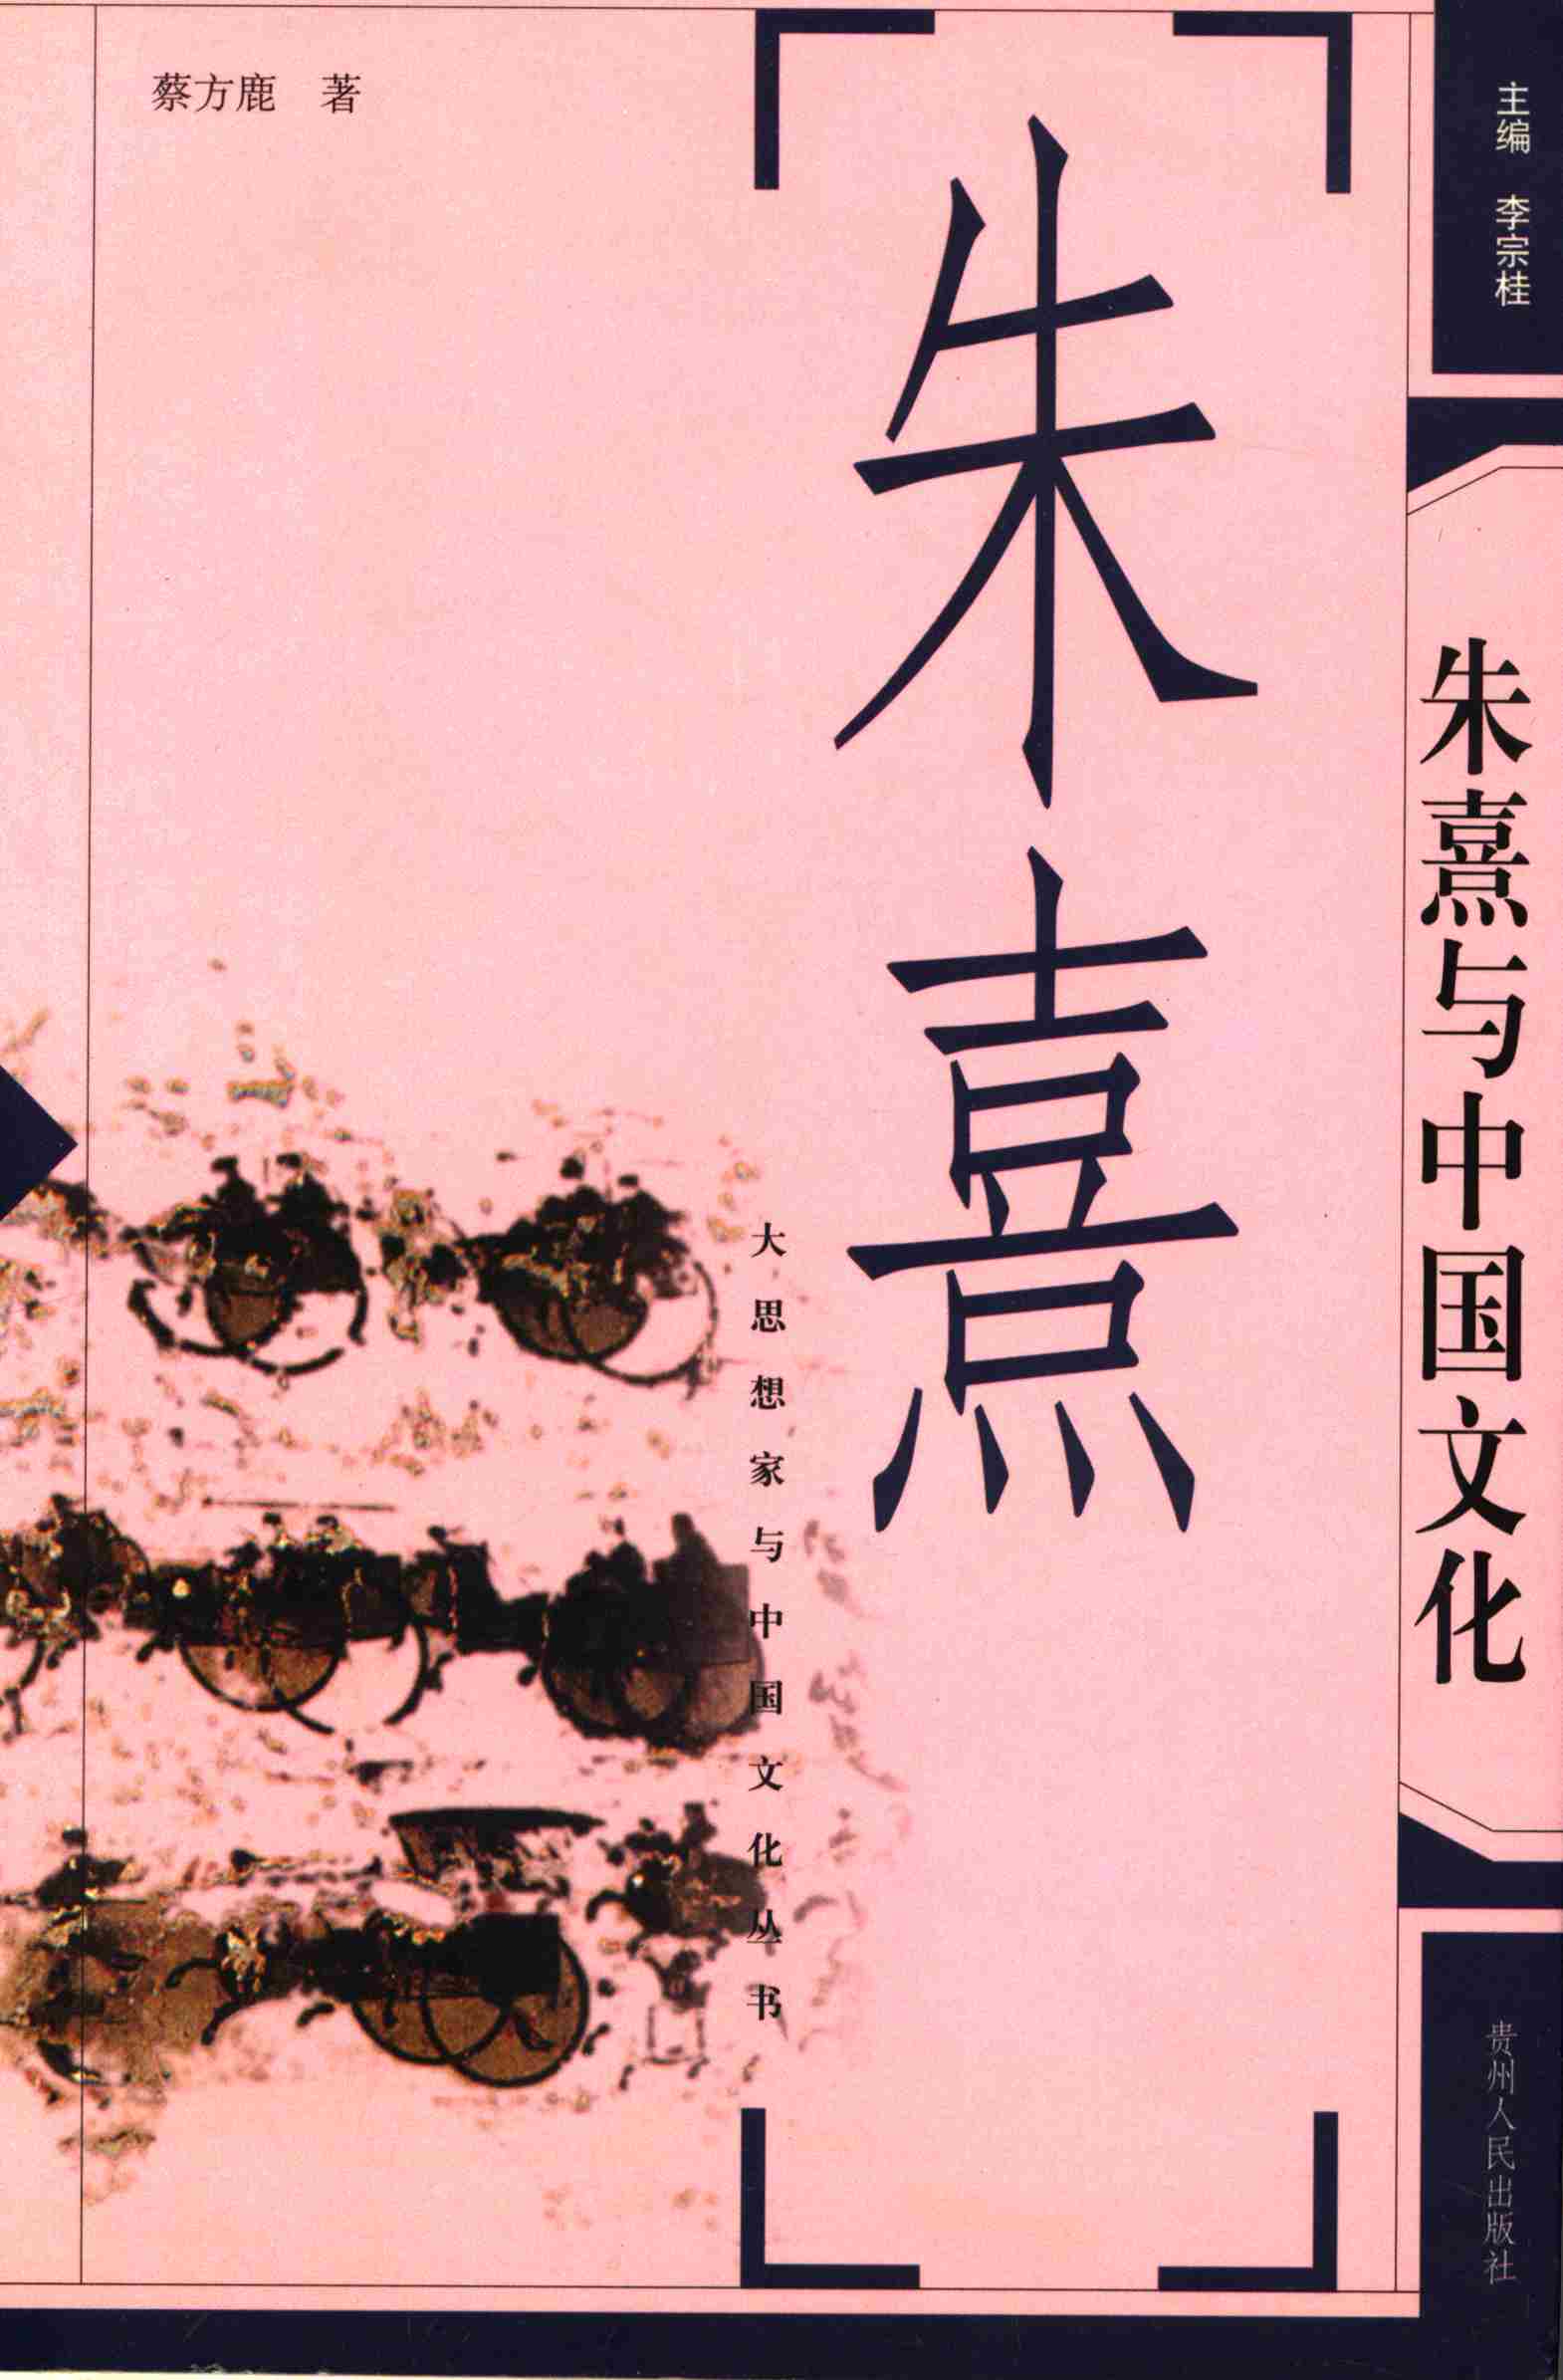 蔡方鹿 著
朱熹
大思想家与中国文化丛书
主编 李宗桂
朱熹与中国文化
贵州人民出版社